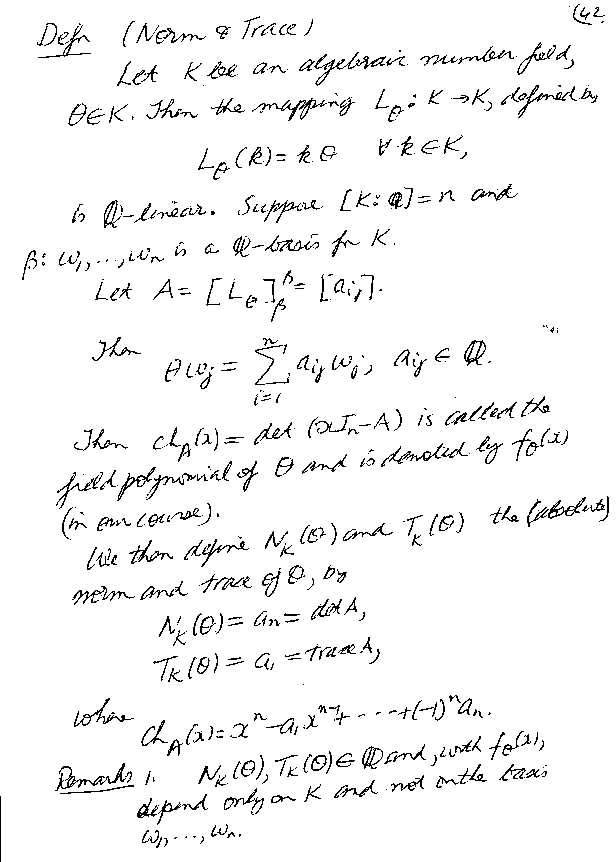 (42
Defn (Norm & Trace)
Let K be an algebraic number field,
θ∈K. Then the mapping L_θ: K→K, defined by
L_θ(k) = kθ ∀ k∈K,
is ℚ-linear. Suppose [K:ℚ]=n and
β: ω₁,...,ωₙ is a ℚ-basis for K.
Let A = [L_θ]_β^β = [a_ij].
Then θω_j = Σ_{i=1}^{n} a_ij ω_i, a_ij ∈ ℚ.
Then ch_A(x) = det (xI_n-A) is called the
field polynomial of θ and is denoted by f_θ(x)
(in our course).
We then define N_K(θ) and T_K(θ) the (absolute)
norm and trace of θ, by
N_K(θ) = a_n = det A,
T_K(θ) = a₁ = trace A,
where ch_A(x) = x^n - a₁x^{n-1} + ---- + (-1)^n a_n.
Remarks 1. N_K(θ), T_K(θ) ∈ ℚ and, with f_θ(x),
depend only on K and not on the basis
ω₁, ..., ωₙ.